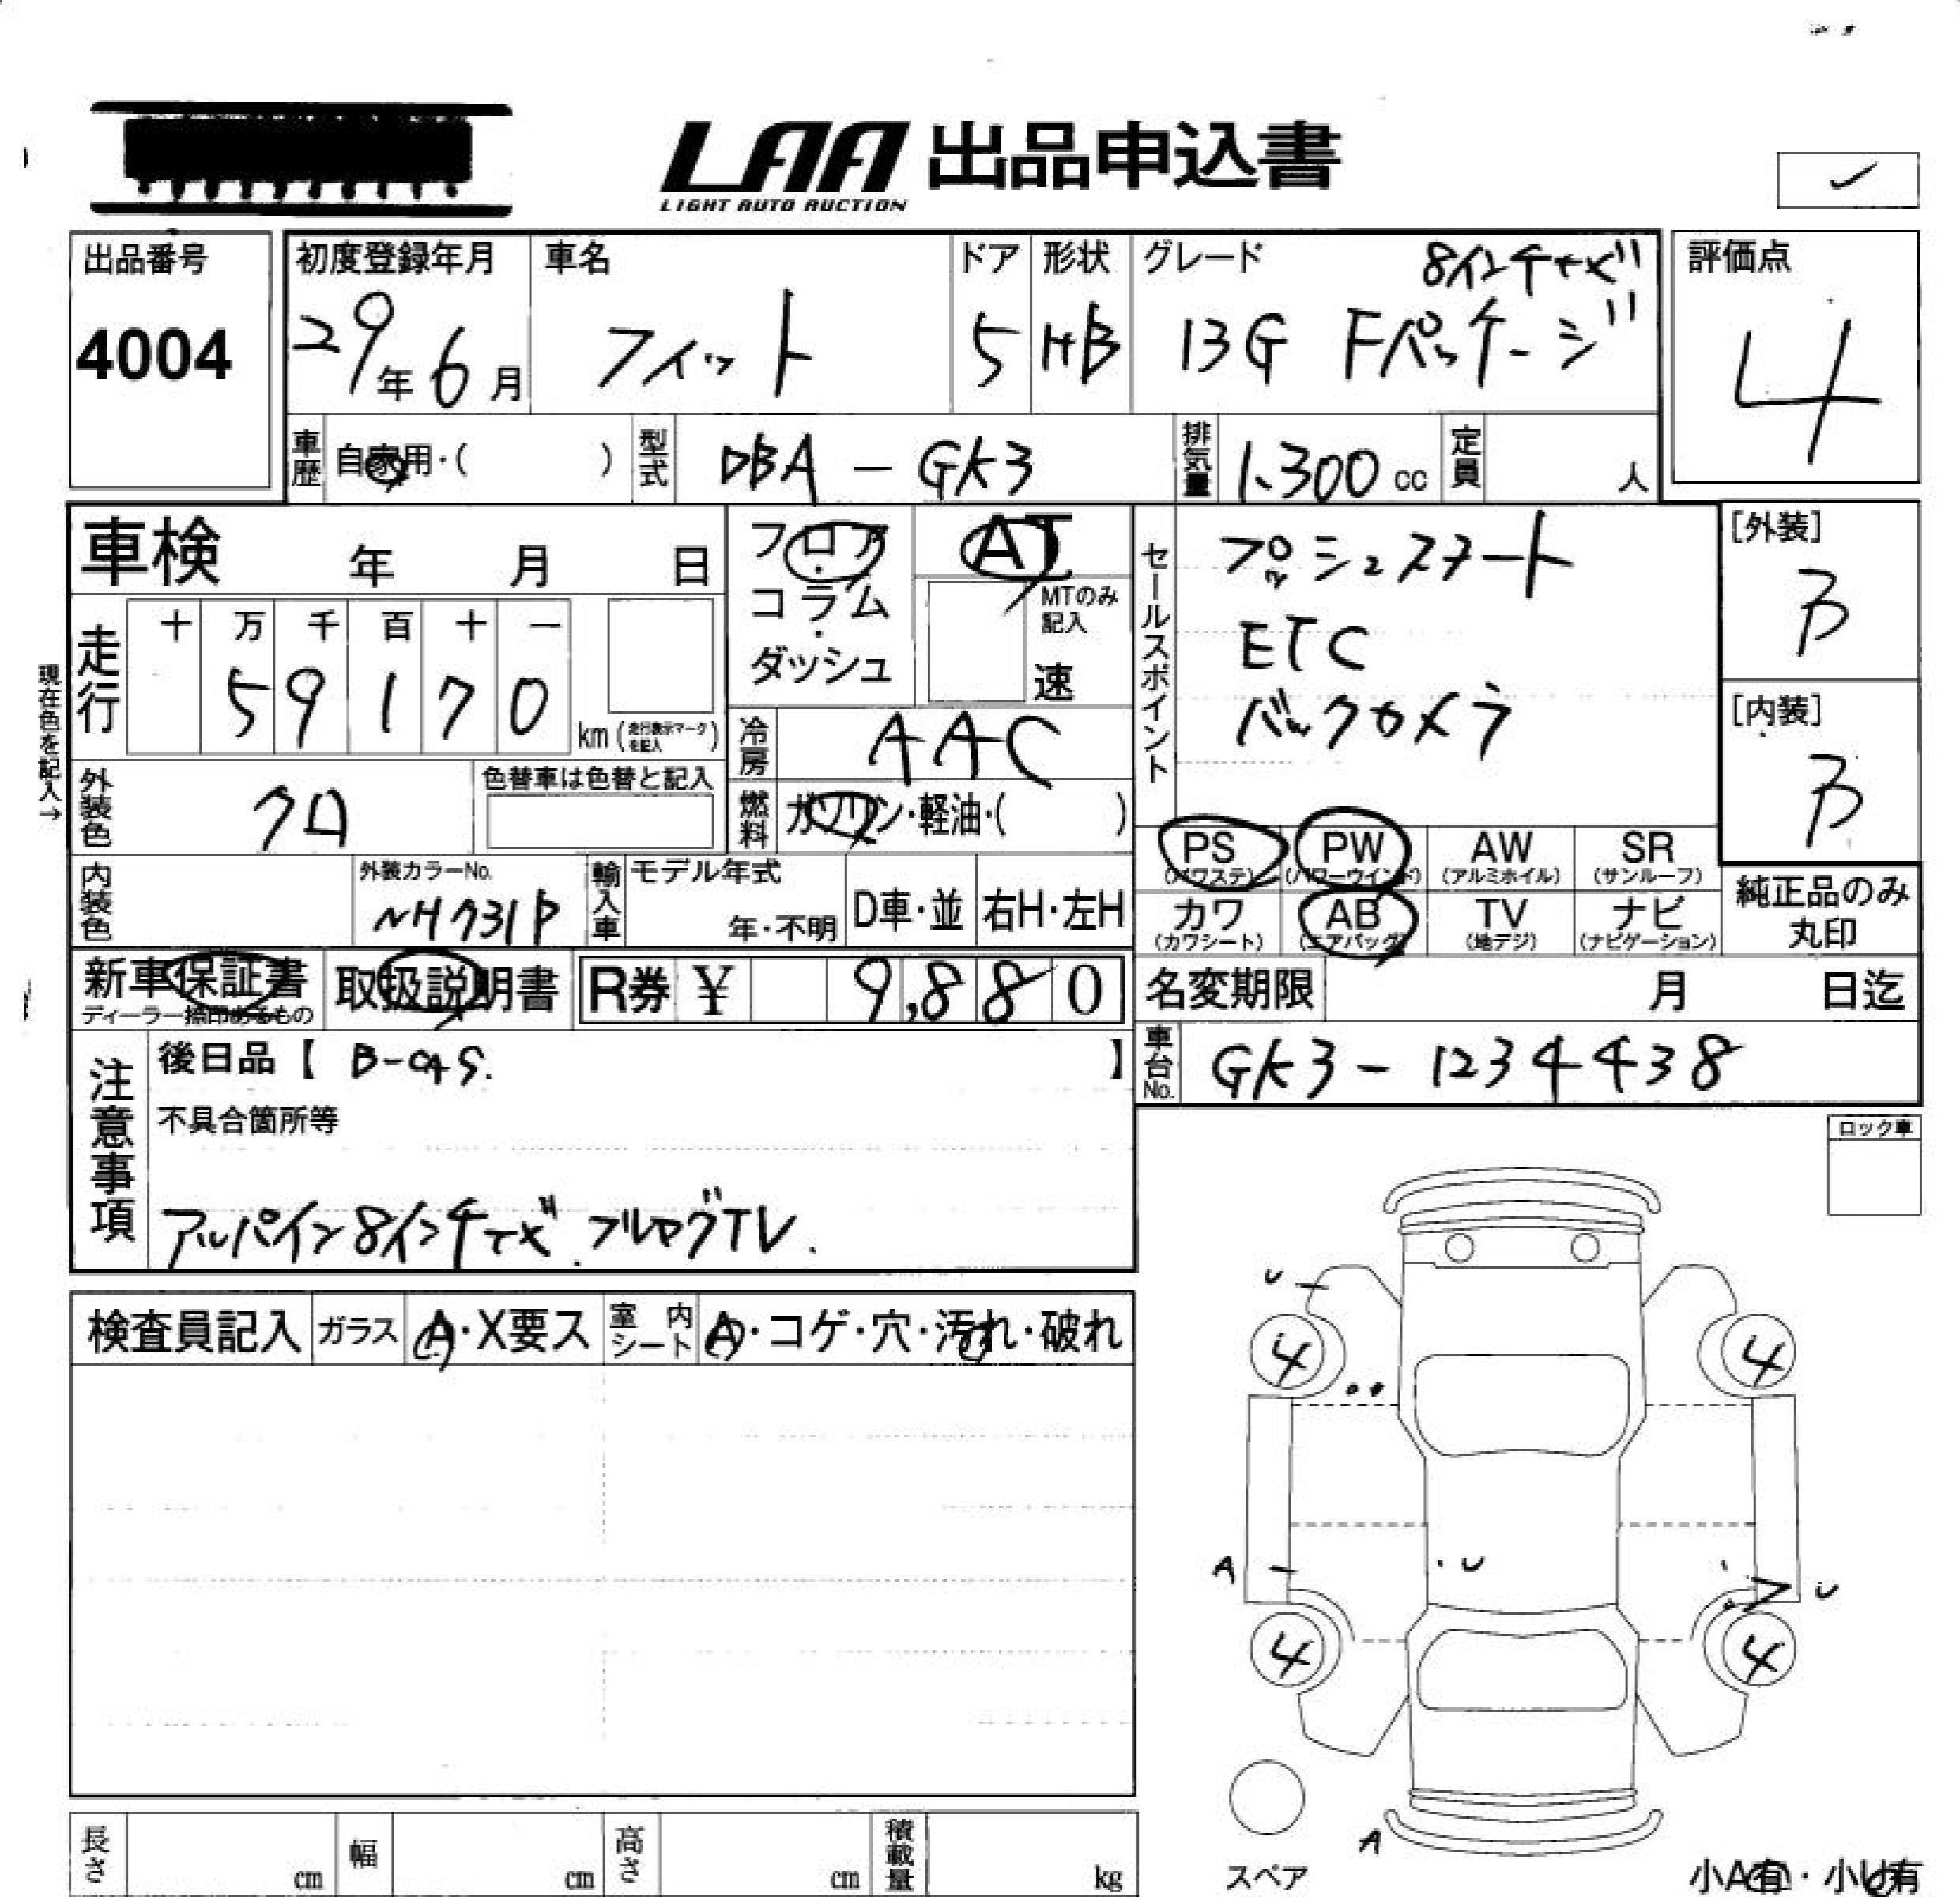 LAA 出品申込書
LIGHT AUTO AUCTION
出品番号
4004
初度登録年月
29年6月
車名
フィット
ドア
5
形状
HB
グレード
8インチナビ
13G Fパッケージ
評価点
4
車歴
自家用・( )
型式
DBA-GK3
排気量
1,300cc
定員
人
車検 年 月 日
フロア・コラム・ダッシュ
AT
MTのみ記入
速
セールスポイント
プッシュスタート
ETC
バックカメラ
[外装]
B
[内装]
B
現在色を記入→
走行
十 万 千 百 十 一
5 9 1 7 0
km(走行表示マークを記入)
冷房
AAC
外装色
クロ
色替車は色替と記入
燃料
ガソリン・軽油・( )
PS
(パワステ)
PW
(パワーウインド)
AW
(アルミホイル)
SR
(サンルーフ)
内装色
外装カラーNo.
NH731P
輸入車
モデル年式
年・不明
D車・並
右H・左H
カワ
(カワシート)
AB
(エアバッグ)
TV
(地デジ)
ナビ
(ナビゲーション)
純正品のみ
丸印
新車保証書
ディーラー捺印あるもの
取扱説明書
R券 ¥ 9,880
名変期限 月 日迄
車台No.
GK3-1234438
注意事項
後日品【 B-CAS. 】
不具合箇所等
アルパイン8インチナビ.フルセグTV.
ロック車
検査員記入
ガラス
A・X要ス
室内シート
A・コゲ・穴・汚れ・破れ
U
4
4
A
U
U
4
4
A
スペア
小A有・小U有
長さ
cm
幅
cm
高さ
cm
積載量
kg